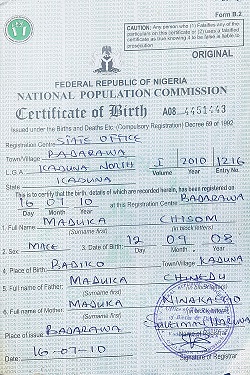 Form B.2
CAUTION: Any person who (1) Falsifies any of the
particulars on this certificate or (2) uses a falsified
certificate as true knowing it to be false is liable to
prosecution
ORIGINAL
FEDERAL REPUBLIC OF NIGERIA
NATIONAL POPULATION COMMISSION
Certificate of Birth A08 4451443
Issued under the Births and Deaths Etc (Compulsory Registration) Decree 69 of 1992
Registration Centre STATE OFFICE
Town/Village BADARAWA
L.G.A KADUNA NORTH I 2010 1216
State KADUNA Volume Year Entry No.
This is to certify that the birth, details of which are recorded herein, has been registered on
16 07 10 at this Registration Centre BADARAWA
Day Month Year
1. Full Name MADUKA CHISOM
(Surname first) (in block letters)
2. Sex MALE 3. Date of Birth 12 09 08
Day Month Year
4. Place of Birth BADIKO Town/Village KADUNA
5. Full name of Father: MADUKA CHINEDU
(Surname first)
6. Full name of Mother: MADUKA
(Surname first)
Place of issue BADARAWA
Date: 16-07-10 Signature of Registrar